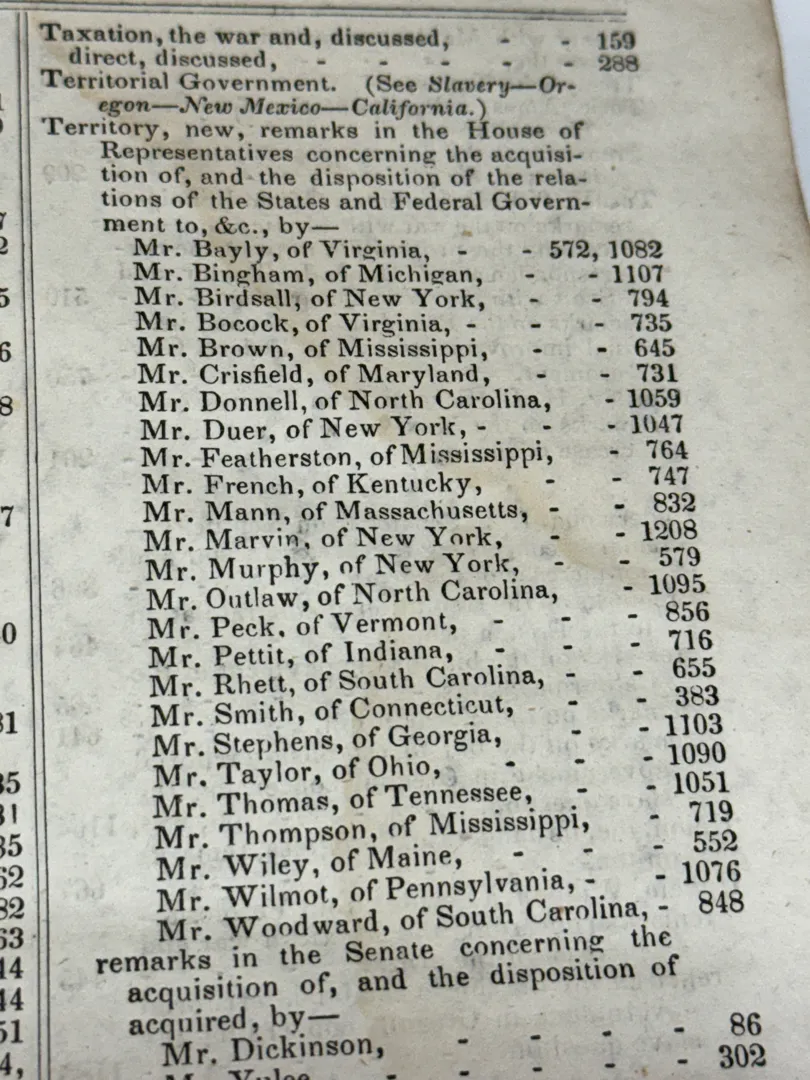 Taxation, the war and, discussed, - - 159
direct, discussed, - - - - - 288
Territorial Government. (See Slavery—Or-
egon—New Mexico—California.)
Territory, new, remarks in the House of
Representatives concerning the acquisi-
tion of, and the disposition of the rela-
tions of the States and Federal Govern-
ment to, &c., by—
Mr. Bayly, of Virginia, - - 572, 1082
Mr. Bingham, of Michigan, - - 1107
Mr. Birdsall, of New York, - - 794
Mr. Bocock, of Virginia, - - - 735
Mr. Brown, of Mississippi, - - 645
Mr. Crisfield, of Maryland, - - 731
Mr. Donnell, of North Carolina, - 1059
Mr. Duer, of New York, - - - 1047
Mr. Featherston, of Mississippi, - 764
Mr. French, of Kentucky, - - 747
Mr. Mann, of Massachusetts, - - 832
Mr. Marvin, of New York, - - 1208
Mr. Murphy, of New York, - - 579
Mr. Outlaw, of North Carolina, - 1095
Mr. Peck, of Vermont, - - - 856
Mr. Pettit, of Indiana, - - - 716
Mr. Rhett, of South Carolina, - - 655
Mr. Smith, of Connecticut, - - 383
Mr. Stephens, of Georgia, - - 1103
Mr. Taylor, of Ohio, - - - 1090
Mr. Thomas, of Tennessee, - - 1051
Mr. Thompson, of Mississippi, - 719
Mr. Wiley, of Maine, - - - 552
Mr. Wilmot, of Pennsylvania, - - 1076
Mr. Woodward, of South Carolina, - 848
remarks in the Senate concerning the
acquisition of, and the disposition of
acquired, by—
Mr. Dickinson, - - - - 86
Mr. Yulee - - - - 302